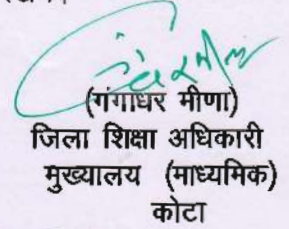 (गंगाधर मीणा)
जिला शिक्षा अधिकारी
मुख्यालय (माध्यमिक)
कोटा